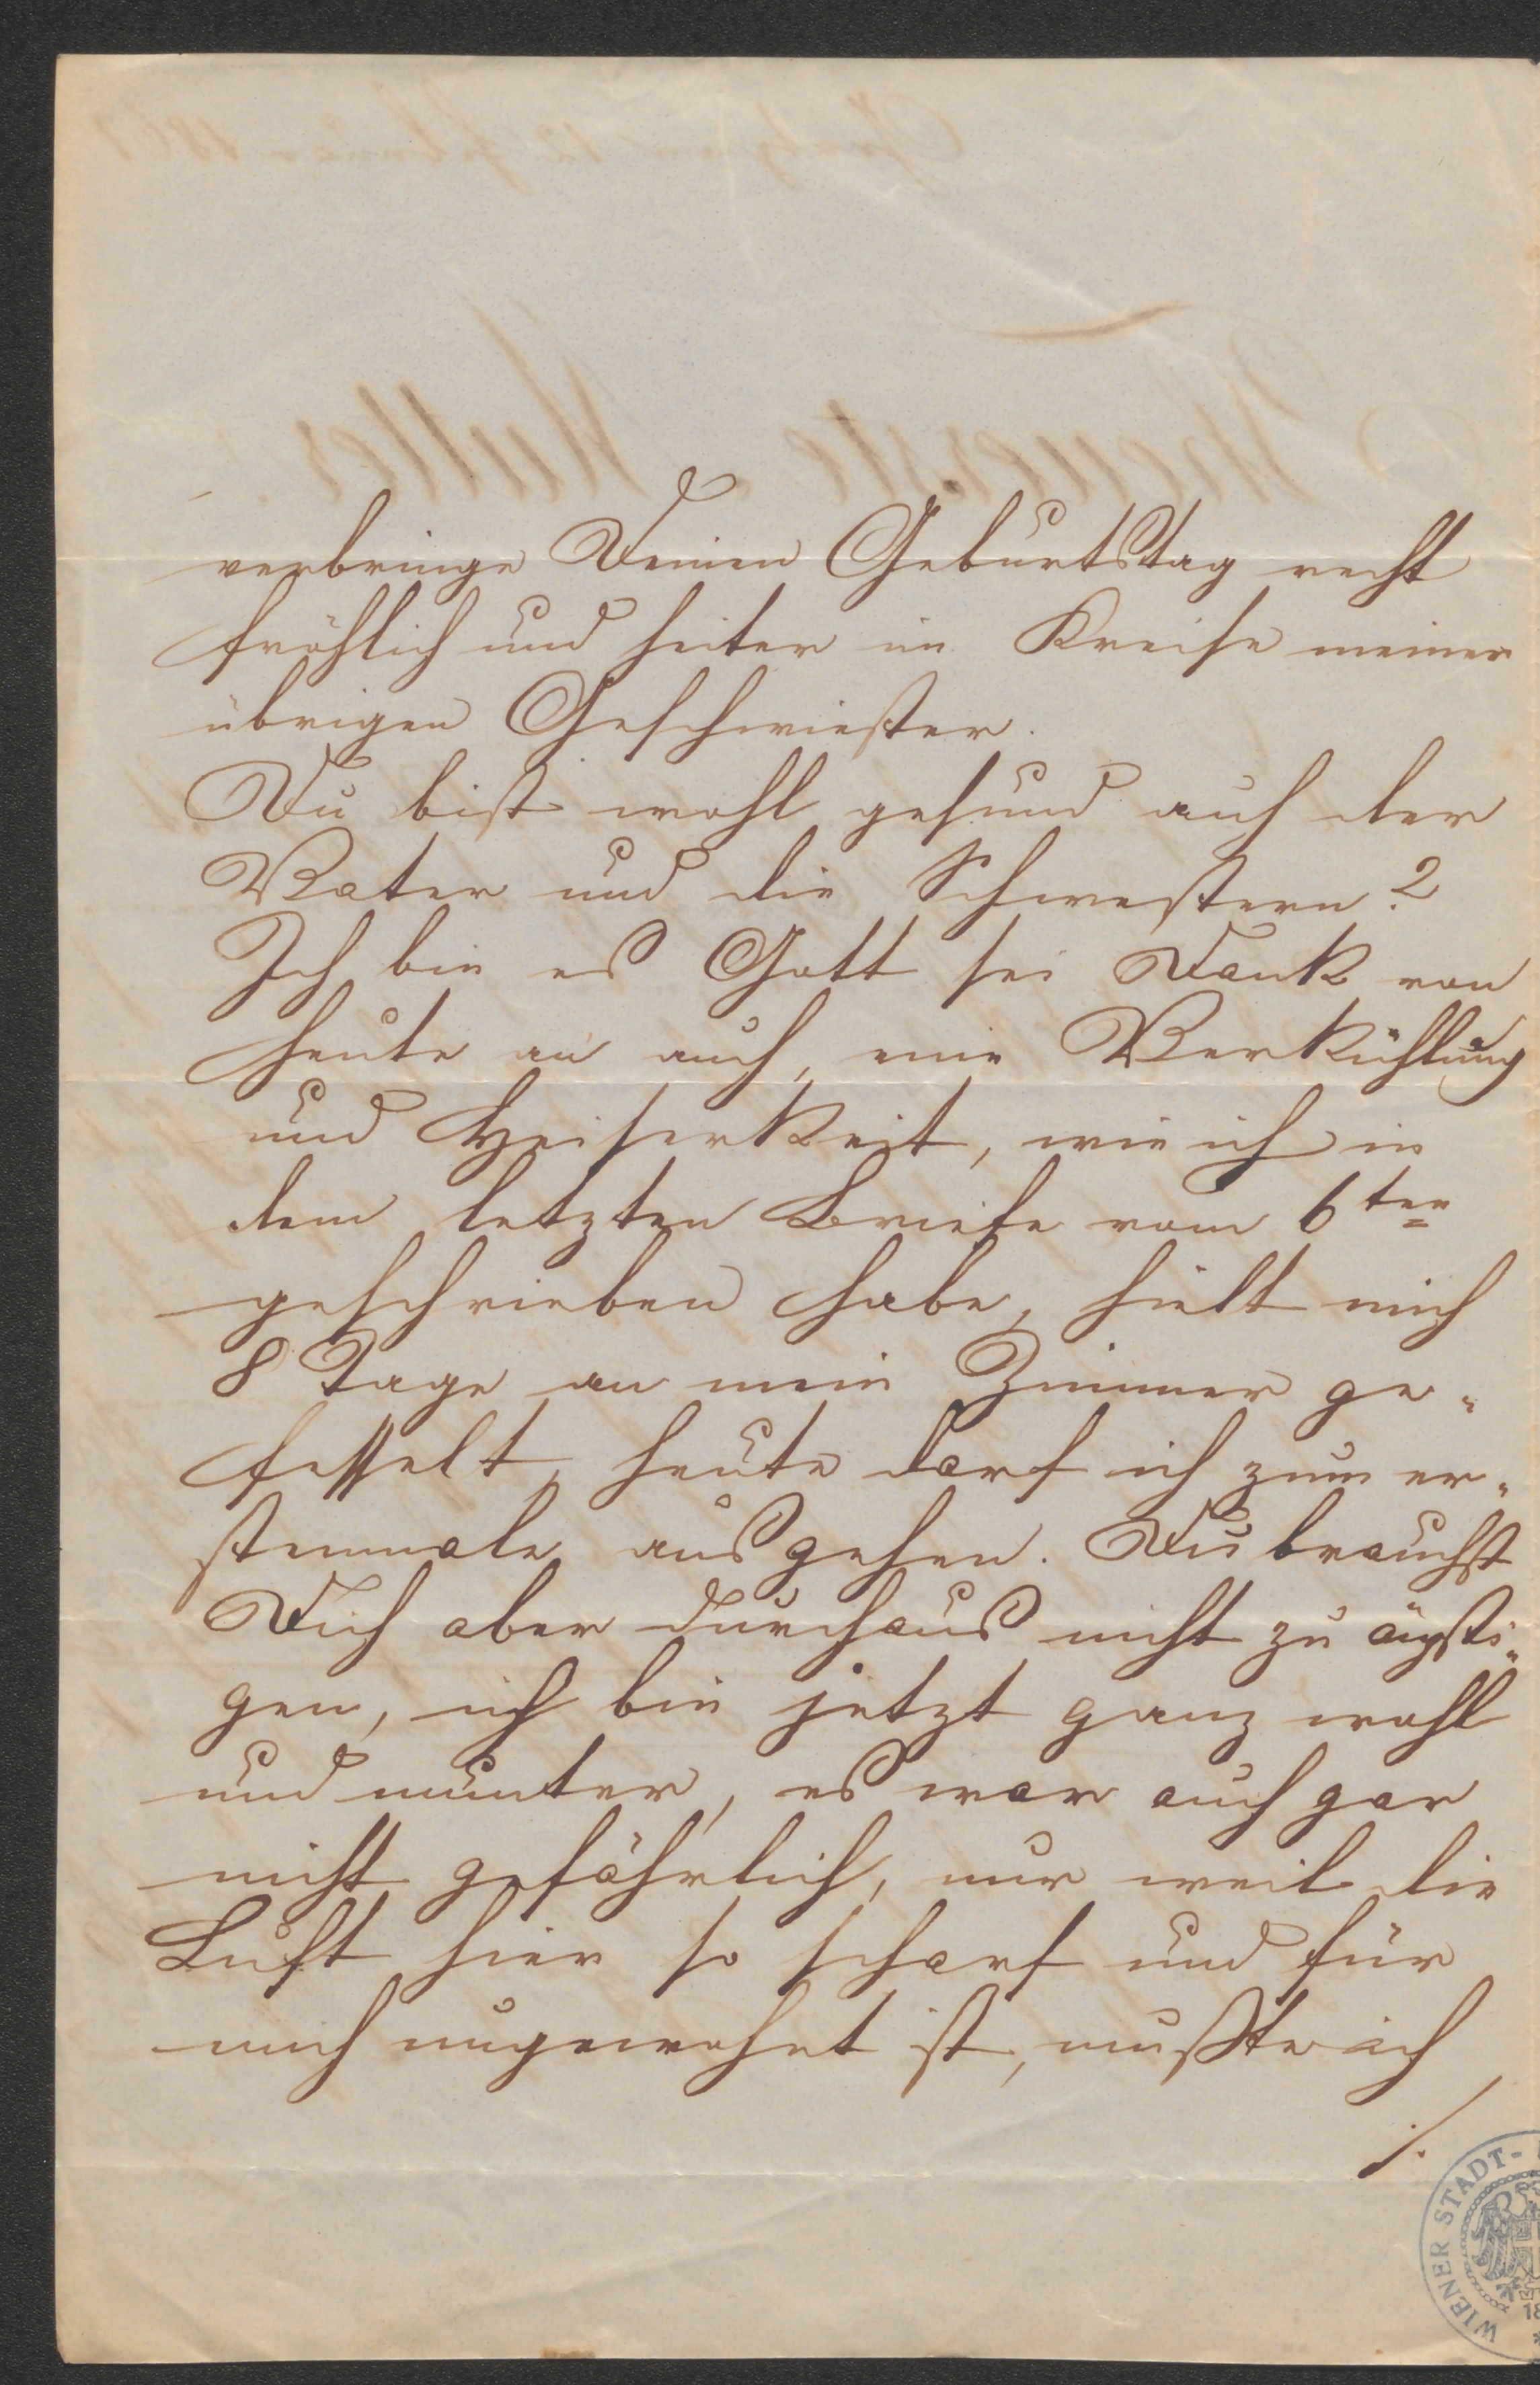 verbringe Deinen Geburtstag recht
fröhlich und heiter im Kreise meiner
übrigen Geschwister.
Du bist wohl gesund auch der
Vater und die Schwestern?
Ich bin es Gott sei Dank von
heute an auch, eine Verkühlung
und Heiserkeit, wie ich in
dem letzten Briefe vom 6ten
geschrieben habe, hielt mich
8 Tage an mein Zimmer ge„
fesselt, heute darf ich zum er„
stenmale ausgehen. Du brauchst
Dich aber durchaus nicht zu ängsti„
gen, ich bin jetzt ganz wohl
und munter, es war auch gar
nicht gefährlich, nur weil die
Luft hier so scharf und für
mich ungewohnt ist, mußte ich
./.
WIENER STADT-
18